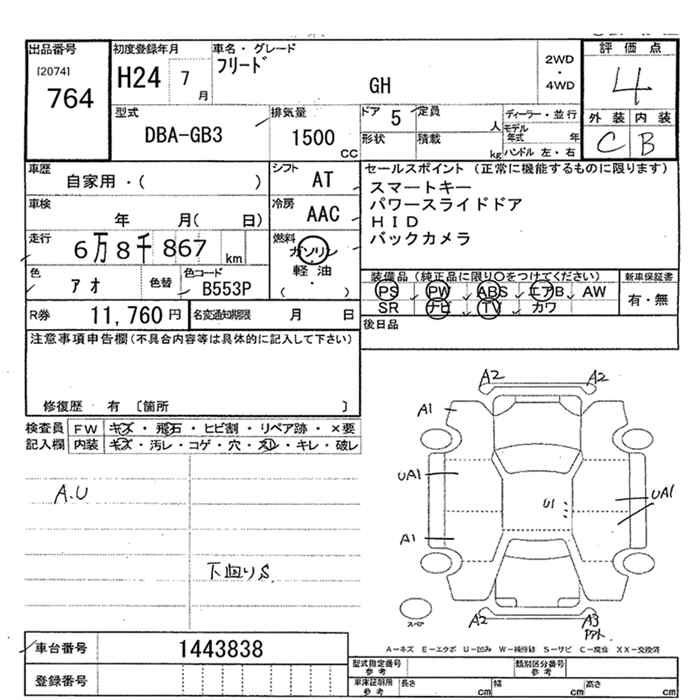 出品番号
[2074]
764
初度登録年月
H24 7
月
車名・グレード
フリード
GH
2WD
・
4WD
評価点
4
外装 内装
C B
型式
DBA-GB3
排気量
1500
CC
ドア 5
定員
人
形状
積載
kg
ディーラー・並行
モデル年式 年
ハンドル 左・右
車歴
自家用・( )
シフト AT
車検
年 月( 日)
冷房 AAC
走行
6万8千867 km
燃料
ガソリン
軽・油
・
( )
色
アオ
色替
色コード
B553P
R券 11,760円
名変通知期限 月 日
セールスポイント(正常に機能するものに限ります)
スマートキー
パワースライドドア
HID
バックカメラ
装備品(純正品に限り○をつけてください)
PS PW ABS エアB AW
SR ナビ TV カワ
新車保証書
有・無
後日品
注意事項申告欄(不具合内容等は具体的に記入して下さい)
修復歴・有 〔箇所 〕
検査員 FW キズ・飛石・ヒビ割・リペア跡・×要
記入欄 内装 キズ・汚レ・コゲ・穴・スレ・キレ・破レ
A.U
下廻りS
A2 A2
A1
UA1
U1
UA1
A1
スペア
A2
A3
A-キズ E-エクボ U-凹み W-補修跡 S-サビ C-腐食 XX-交換済
車台番号 1443838
登録番号
型式指定番号
参考
類別区分番号
参考
車庫証明用
参考
長さ cm
幅 cm
高さ cm